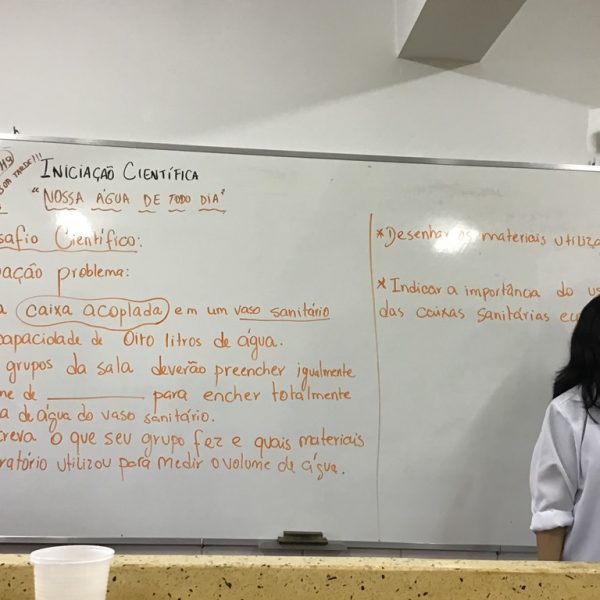 INICIAÇÃO CIENTÍFICA
"NOSSA ÁGUA DE TODO DIA"
safio Científico:
ação problema:
a caixa acoplada em um vaso sanitário
capacidade de Oito litros de água.
grupos da sala deverão preencher igualmente
me de __________ para encher totalmente
a de água do vaso sanitário.
creva o que seu grupo fez e quais materiais
oratório utilizou para medir o volume de água.
*Desenhar os materiais utiliza
*Indicar a importância do us
das caixas sanitárias eco